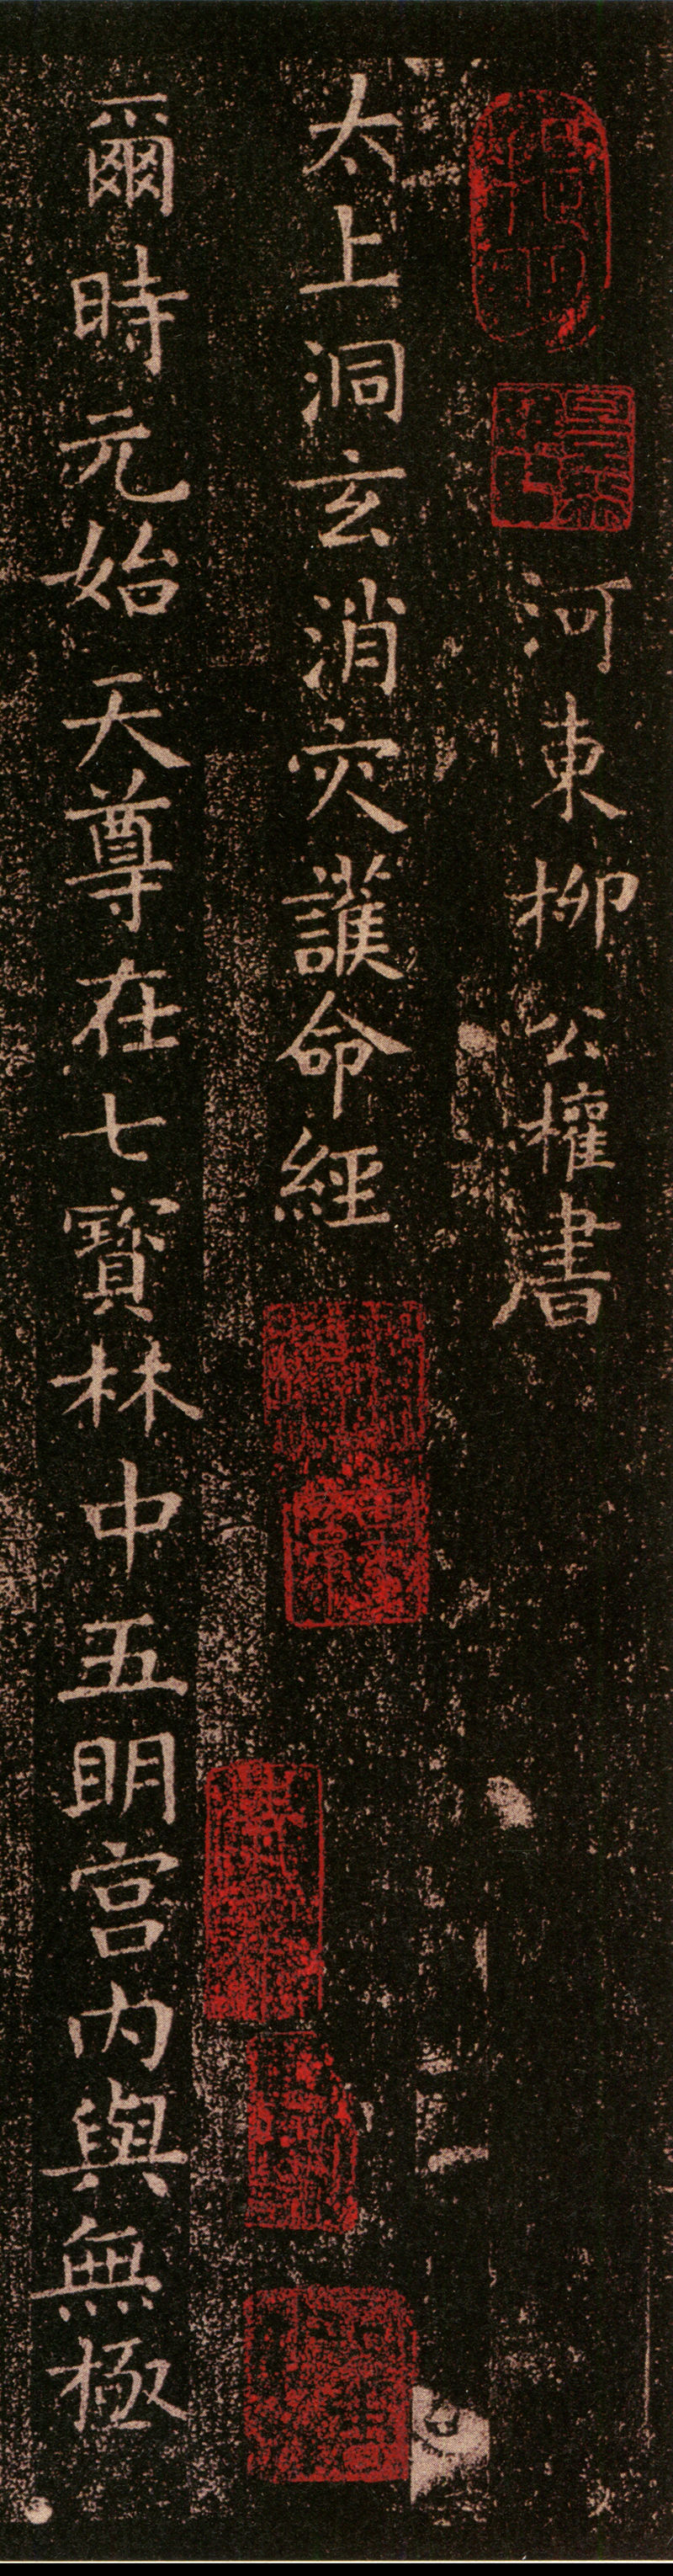 河東柳公權書
太上洞玄消灾護命經
爾時元始天尊在七寶林中五明宮內與無極